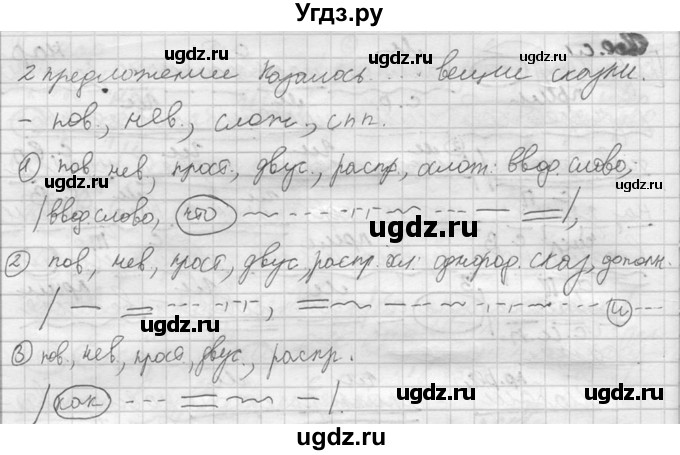 Угдз.ру
2 предложение Казалось... вещие сказки.
- пов., нев., слож., спп.
① пов, нев, прост., двус., распр, ослож: ввод. слово,
/ввод слово, что
② пов, нев, прост, двус, распр. осл: однород. сказ, дополн.
и
③ пов, нев, прост, двус., распр.
/как
ugdz.ru
ugdz.ru
ugdz.ru
ugdz.ru
ugdz.ru
ugdz.ru
ugdz.ru
ugdz.ru
ugdz.ru
ugdz.ru
ugdz.ru